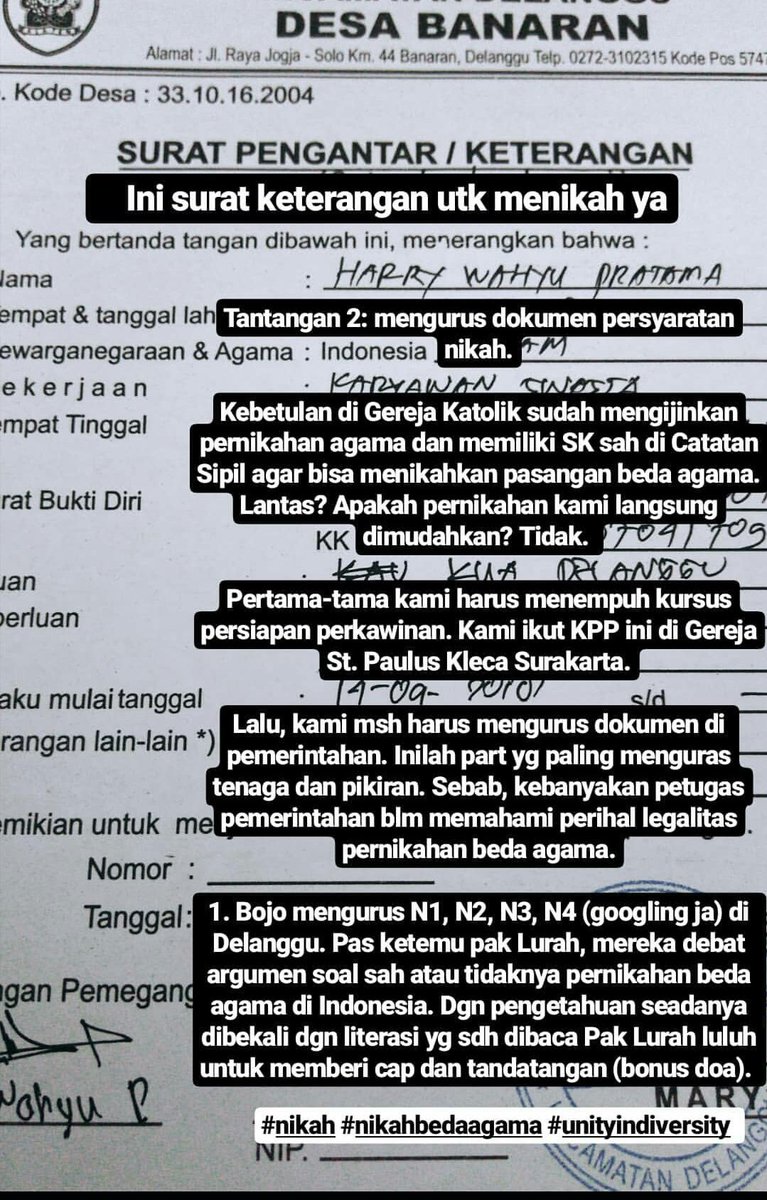 DESA BANARAN
Alamat : Jl. Raya Jogja - Solo Km. 44 Banaran, Delanggu Telp. 0272-3102315 Kode Pos 5747
. Kode Desa : 33.10.16.2004
SURAT PENGANTAR / KETERANGAN
Ini surat keterangan utk menikah ya
Yang bertanda tangan dibawah ini, menerangkan bahwa :
Nama : HARRY WAHYU PRATAMA
empat & tanggal lah
Tantangan 2: mengurus dokumen persyaratan
nikah.
ewarganegaraan & Agama : Indonesia
e k e r j a a n : KARYAWAN SWASTA
empat Tinggal
Kebetulan di Gereja Katolik sudah mengijinkan
pernikahan agama dan memiliki SK sah di Catatan
Sipil agar bisa menikahkan pasangan beda agama.
Lantas? Apakah pernikahan kami langsung
dimudahkan? Tidak.
rat Bukti Diri
KK
uan : KUA DELANGGU
perluan
Pertama-tama kami harus menempuh kursus
persiapan perkawinan. Kami ikut KPP ini di Gereja
St. Paulus Kleca Surakarta.
aku mulai tanggal : s/d
rangan lain-lain *)
Lalu, kami msh harus mengurus dokumen di
pemerintahan. Inilah part yg paling menguras
tenaga dan pikiran. Sebab, kebanyakan petugas
pemerintahan blm memahami perihal legalitas
pernikahan beda agama.
emikian untuk me
Nomor :
Tanggal:
1. Bojo mengurus N1, N2, N3, N4 (googling ja) di
Delanggu. Pas ketemu pak Lurah, mereka debat
argumen soal sah atau tidaknya pernikahan beda
agama di Indonesia. Dgn pengetahuan seadanya
dibekali dgn literasi yg sdh dibaca Pak Lurah luluh
untuk memberi cap dan tandatangan (bonus doa).
ngan Pemegang
Wahyu P
MARY
#nikah #nikahbedaagama #unityindiversity
NIP.
CAMATAN DELAN